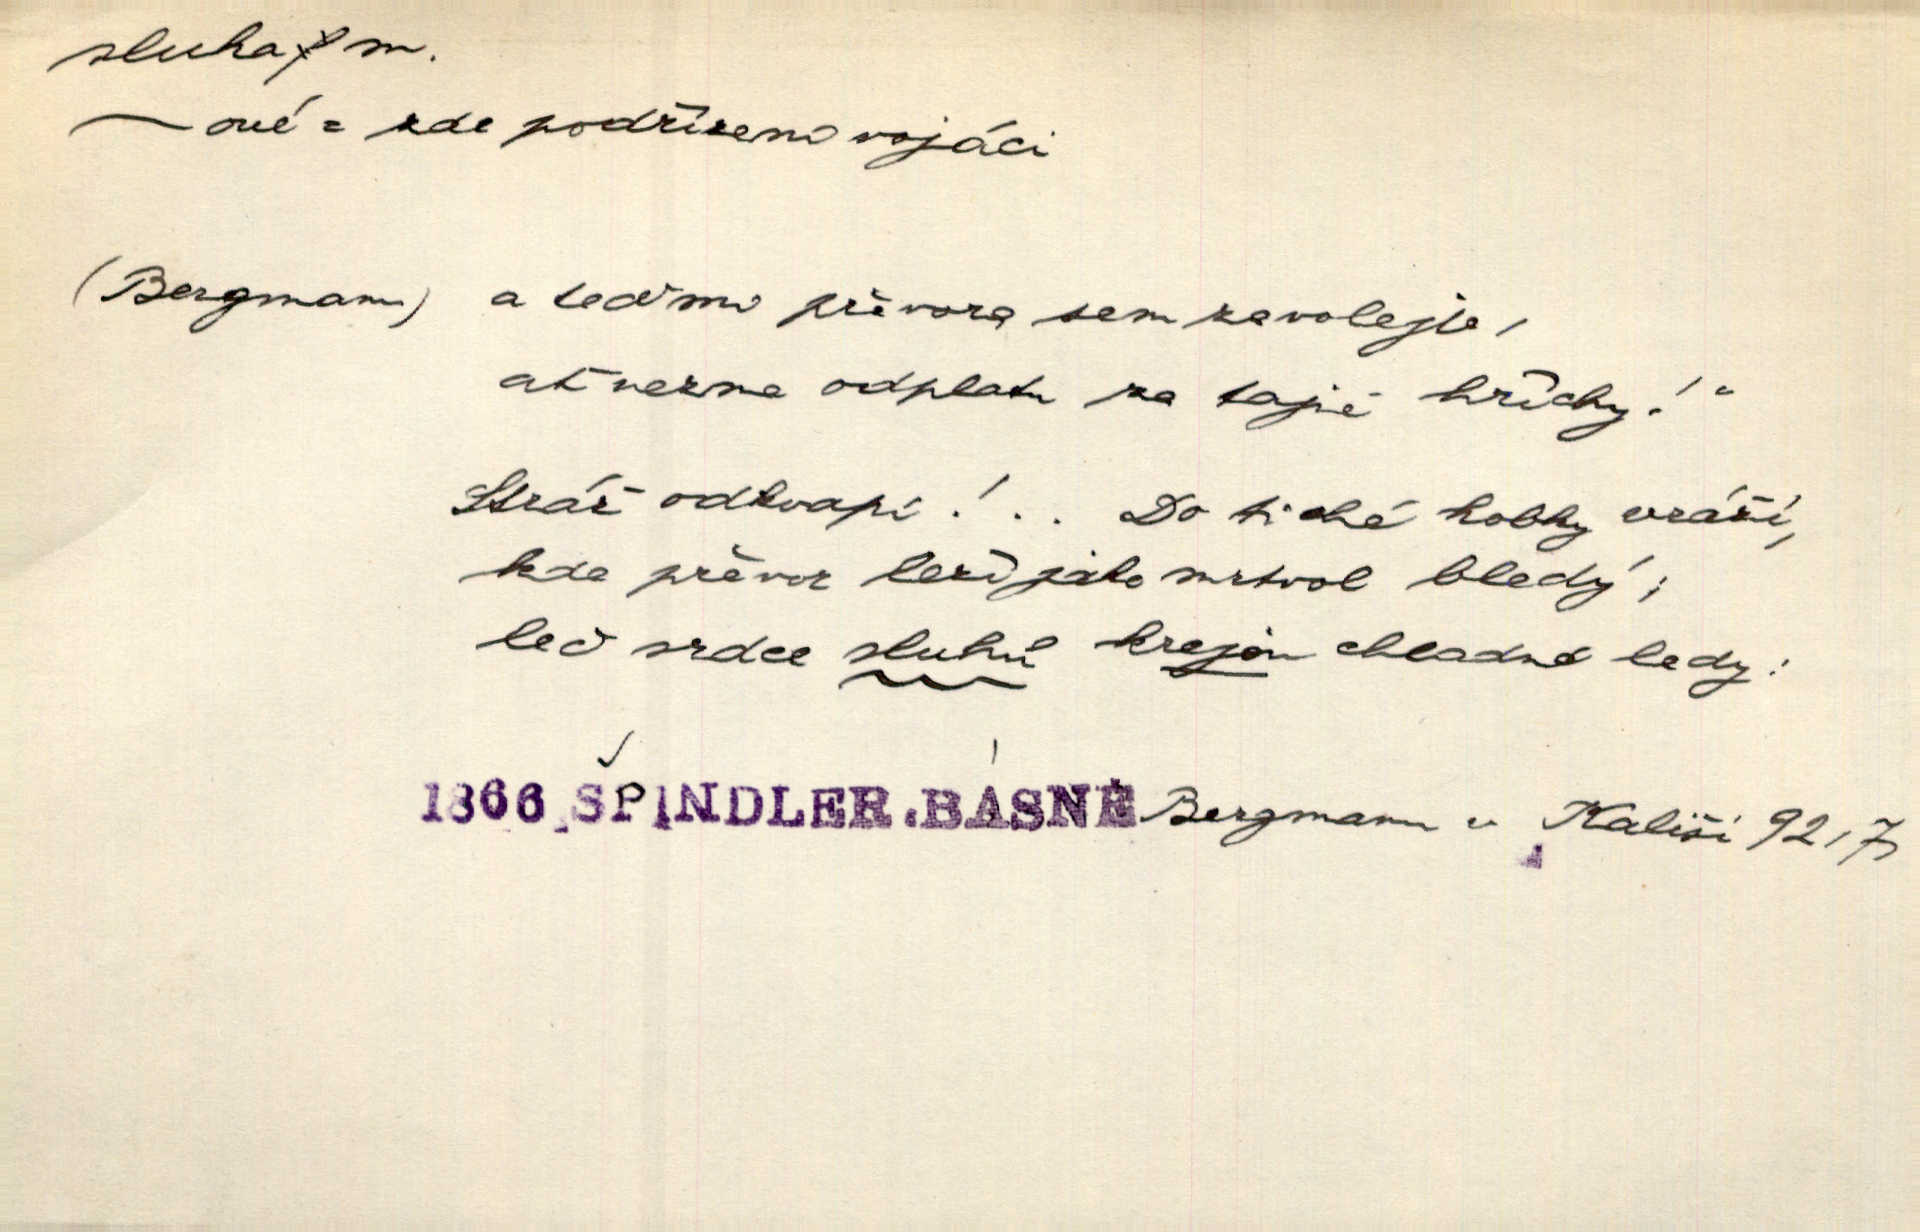 sluha, m.
~ové = zde podřízení vojáci
(Bergmann) a teď mi převora sem zavolejte,
ať vezme odplatu za tajné hříchy!"
Stráž odkvapí! .. Do tiché kobky vráží,
kde převor leží jako mrtvol bledý;
leč srdce sluhů krejou chladné ledy:
1866 ŠPINDLER. BÁSNĚ Bergmann v Kališi 92,7